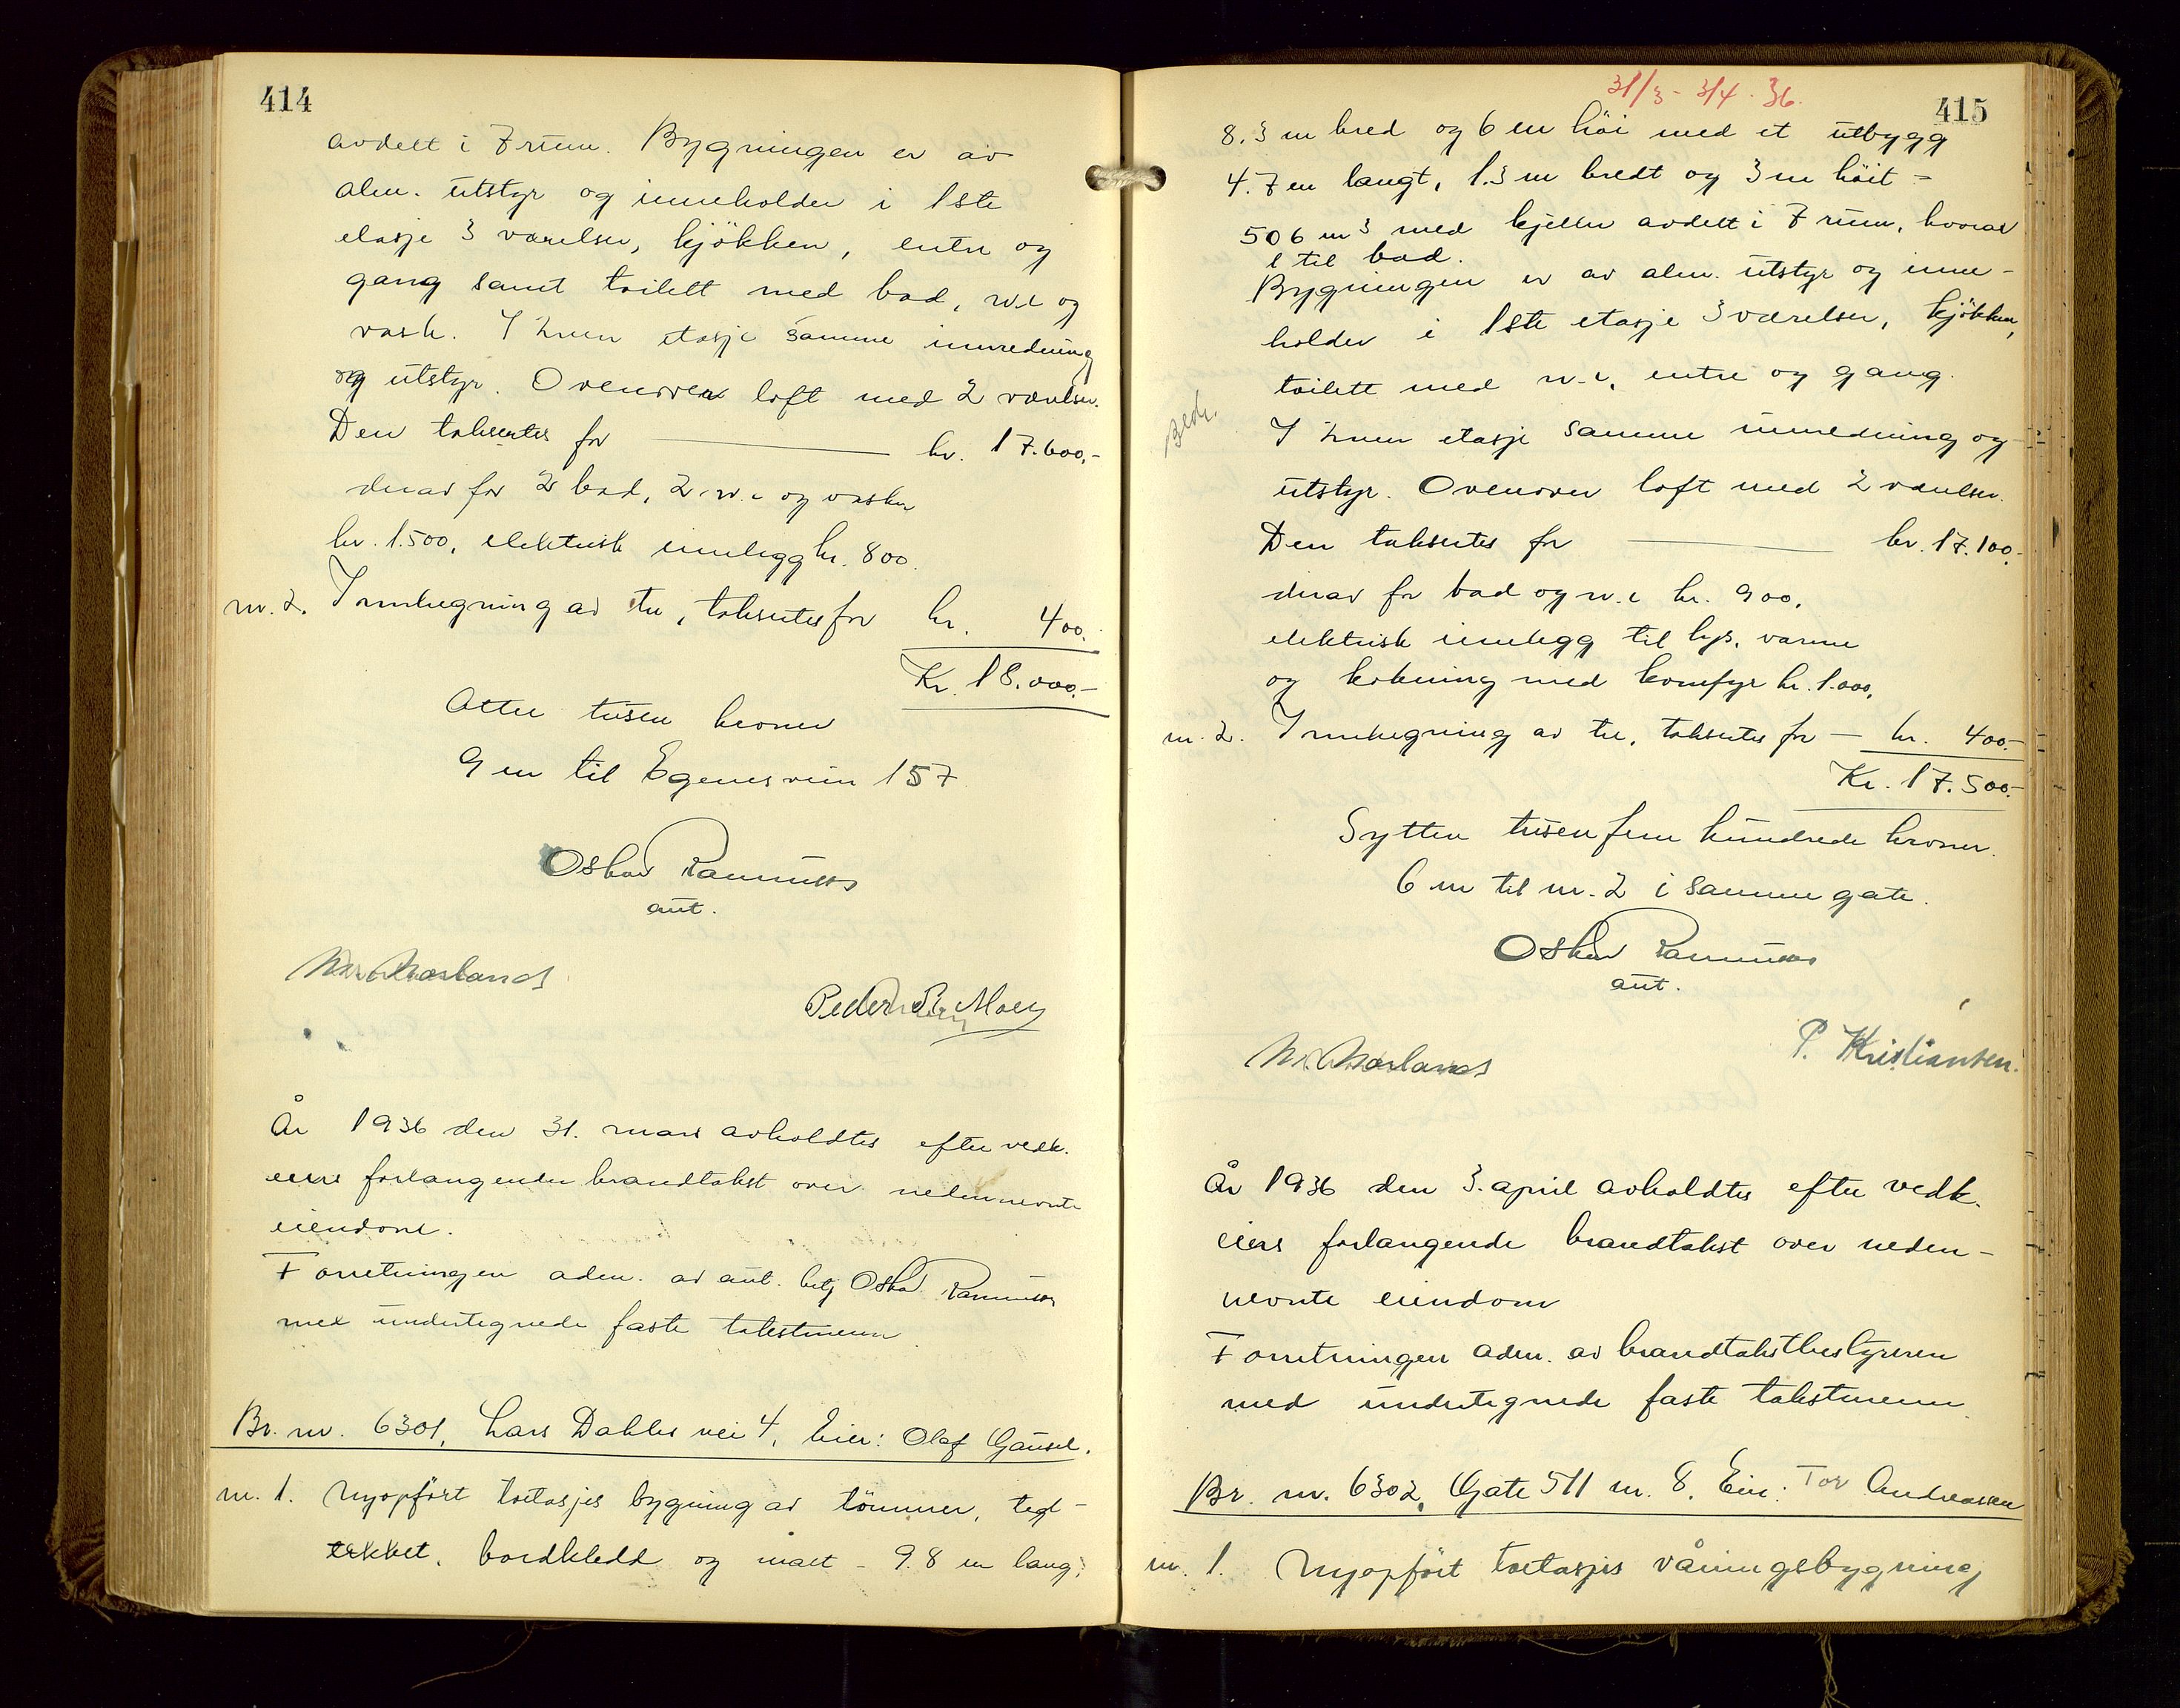 414
avdelt i 7 rum. Bygningen er av
alm. utstyr og inneholder i 1ste
etasje 3 værelser, kjökken, entre og
gang samt toilett med bad, w.c og
vask. I 2nen etasje samme innredning
og utstyr. Ovenover loft med 2 værelser.
Den takseres for kr. 17.600,-
derav for 2 bad, 2 w.c og vasker
kr. 1.500, elektrisk innlegg kr. 800.
nr. 2. Innhegning av tre, takseres for kr. 400.
Kr. 18.000.-
Atten tusen kroner
9 m til Egenesveien 157
Oskar Rasmussen
aut.
Peder Moey
År 1936 den 31. mars avholdtes efter vedk.
eiers forlangende brandtakst over nedennevnte
eiendom.
Forretningen adm. av aut. betj Oskar Rasmussen
med undertegnede faste takstmenn
Br. nr. 6301, Lars Dahles vei 4, Eier: Olaf Gausel.
nr. 1. Nyopfört toetasjes bygning av tömmer, tegl-
tekket, bordkledd og malt - 9.8 m lang,
31/3 - 3/4 - 36.
415
8.3 m bred og 6 m höi med et utbygg
4.7 m langt, 1.3 m bredt og 3 m höit =
506 m3 med kjeller avdelt i 7 rum, hvorav
1 til bad.
Bygningen er av alm. utstyr og inne-
holder i 1ste etasje 3 værelser, kjökken,
toilett med w.c, entre og gang.
I 2nen etasje samme innredning og
utstyr. Ovenover loft med 2 værelser.
Den takseres for kr. 17.100.-
derav for bad og w.c kr. 900,
elektrisk innlegg til lys, varme
og kokning med komfyr kr. 1.000,
nr. 2. Innhegning av tre, takseres for - kr. 400.-
Kr. 17.500.-
Sytten tusen fem hundrede kroner.
6 m til nr. 2 i samme gate.
Oskar Rasmussen
aut.
P. Kristiansen.
År 1936 den 3. april avholdtes efter vedk.
eiers forlangende brandtakst over neden-
nevnte eiendom
Forretningen adm. av brandtakstbestyreren
med undertegnede faste takstmenn.
Br. nr. 6302, Gate 511 nr. 8. Eier: Tor Andreassen
nr. 1. Nyopfört toetasjes våningsbygning